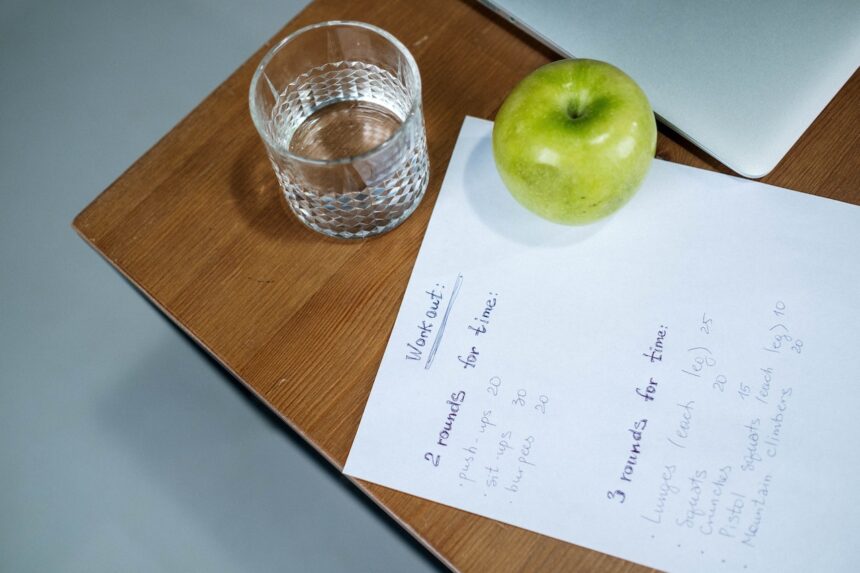 Workout:
2 rounds for time:
· push-ups 20
· sit ups 30
· burpees 20
3 rounds for time:
· Lunges (each leg) 25
· Squats 20
· Crunches 15
· Pistol squats (each leg) 10
· Mountain climbers 20